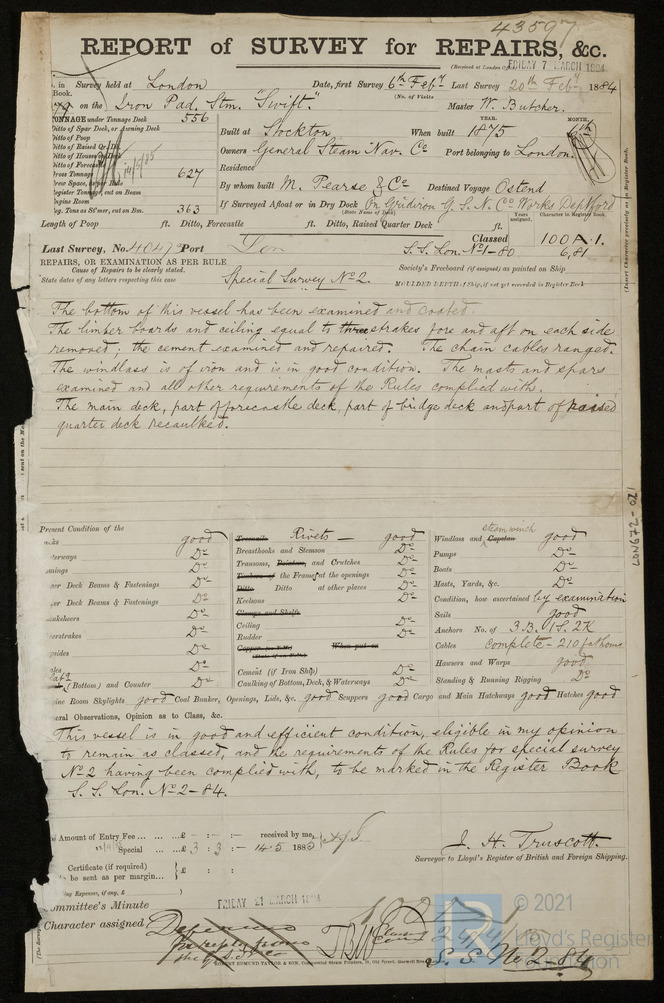 43597
REPORT of SURVEY for REPAIRS, &c.
(Received at London Office FRIDAY 7 MARCH 1884
in Survey held at London Date, first Survey 6th Feby Last Survey 20th Feby 1884
Book. (No. of Visits
79 on the Iron Pad. Stm. "Swift." Master W. Butcher.
TONNAGE under Tonnage Deck 556
Ditto of Spar Deck, or Awning Deck
Ditto of Poop
Ditto of Raised Qr. Dk.
Ditto of Houses on Deck
Ditto of Forecastle
Gross Tonnage 627
Crew Space, as per Rule
Register Tonnage, cut on Beam
Engine Room
Reg. Tons as Stmer, cut on Bm. 363
YEAR. MONTH.
Built at Stockton When built 1875 6th
Owners General Steam Nav. Co Port belonging to London.
Residence
By whom built M. Pearse & Co Destined Voyage Ostend
If Surveyed Afloat or in Dry Dock On Gridiron G. S. N. Co Works Deptford
(State Name of Dock)
Length of Poop ft. Ditto, Forecastle ft. Ditto, Raised Quarter Deck ft.
Years assigned. Character in Register Book.
Classed 100 A.1.
Last Survey, No. 40473 Port Lon S.S. Lon. No 1-80 6,81
REPAIRS, OR EXAMINATION AS PER RULE
Cause of Repairs to be clearly stated.
State dates of any letters respecting this case
Special Survey No 2.
Society's Freeboard (if assigned) as painted on Ship
MOULDED DEPTH of Ship, if not yet recorded in Register Book
The bottom of this vessel has been examined and coated.
The limber boards and ceiling equal to three strakes fore and aft on each side
removed; the cement examined and repaired. The chain cables ranged.
The windlass is of iron and is in good condition. The masts and spars
examined and all other requirements of the Rules complied with.
The main deck, part of forecastle deck, part of bridge deck and part of raised
quarter deck recaulked.
LON672-021
Present Condition of the
good
Do
Do
Deck Beams & Fastenings Do
Deck Beams & Fastenings Do
Do
Do
Do
Do
(Bottom) and Counter Do
Treenails Rivets — good
Breasthooks and Stemson Do
Transoms, Pointers, and Crutches Do
Timbers of the Frame, at the openings Do
Ditto Ditto at other places Do
Keelsons Do
Clamps and Shelfs
Ceiling Do
Rudder Do
When put on
Cement (if Iron Ship) Do
Caulking of Bottom, Deck, & Waterways Do
steam winch
Windlass and Capstan good
Pumps Do
Boats Do
Masts, Yards, &c. Do
Condition, how ascertained by examination
Sails good
Anchors No. of 3.B. 1S. 2K
Cables complete - 210 fathoms
Hawsers and Warps good
Standing & Running Rigging Do
Engine Room Skylights good Coal Bunker, Openings, Lids, &c. good Scuppers good Cargo and Main Hatchways good Hatches good
General Observations, Opinion as to Class, &c.
This vessel is in good and efficient condition, eligible in my opinion
to remain as classed, and the requirements of the Rules for special survey
No 2 having been complied with, to be marked in the Register Book
S. S. Lon. No 2-84.
Amount of Entry Fee ... £ : : — received by me,
Special ... £ 3 : 3 : — 14 5 1885
Certificate (if required)
to be sent as per margin...
J. H. Truscott.
Surveyor to Lloyd's Register of British and Foreign Shipping.
Committee's Minute FRIDAY 21 MARCH 1884
Character assigned
S.S. No 2-84
© 2021
Lloyd's Register
Foundation